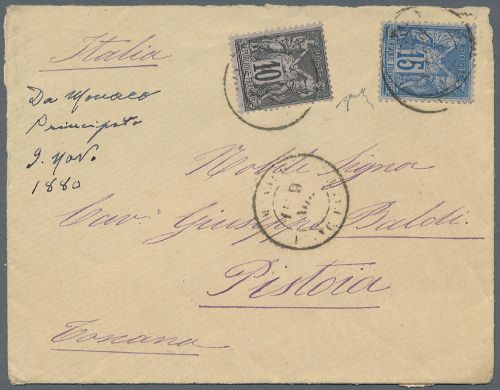 Italia
10
15
Da Monaco
Principato
9. Nov.
1880
Nobile Signor
9
Cav: Giuseppe Baldi
Pistoia
Toscana